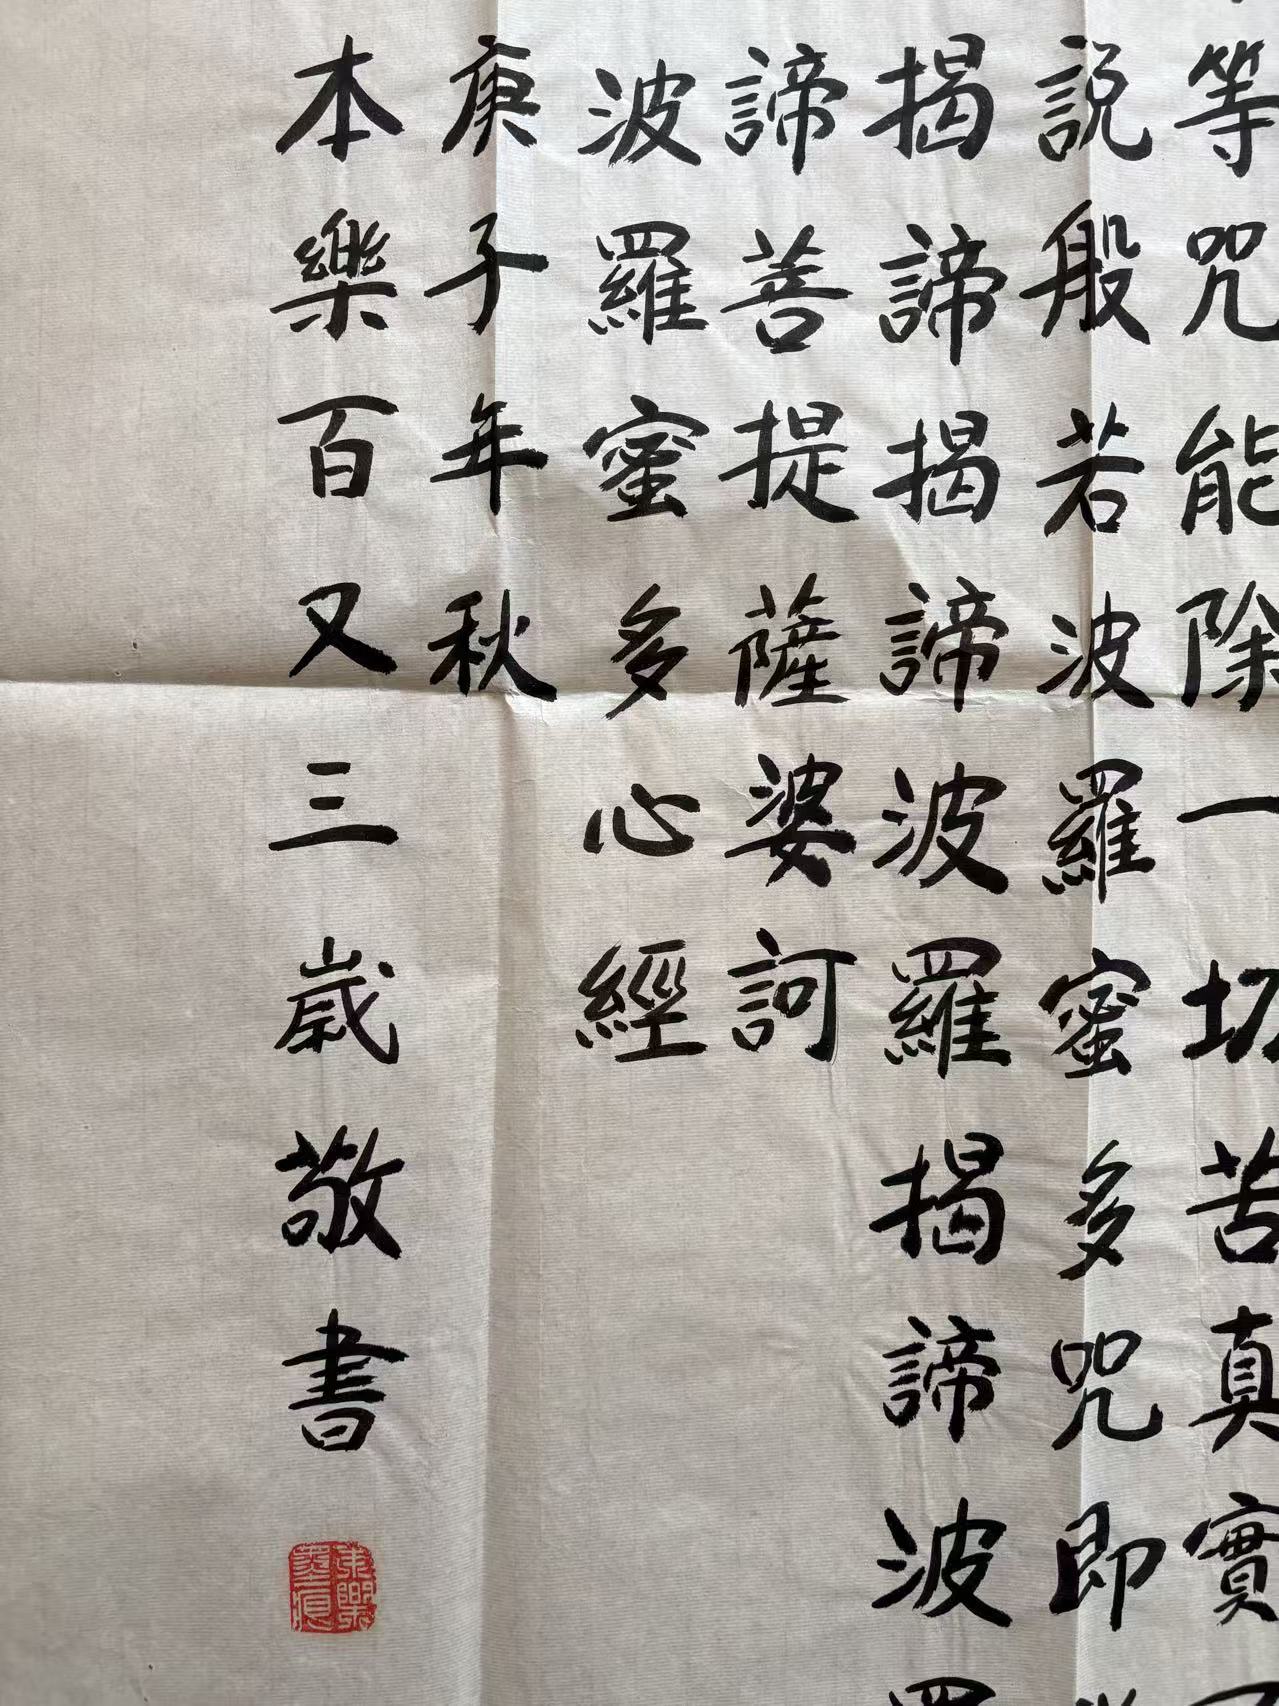 等咒能除一切苦真實
説般若波羅蜜多咒即
揭諦揭諦波羅揭諦波羅
諦菩提薩婆訶
波羅蜜多心經
庚子年秋
本樂百又三歲敬書
本樂墨痕